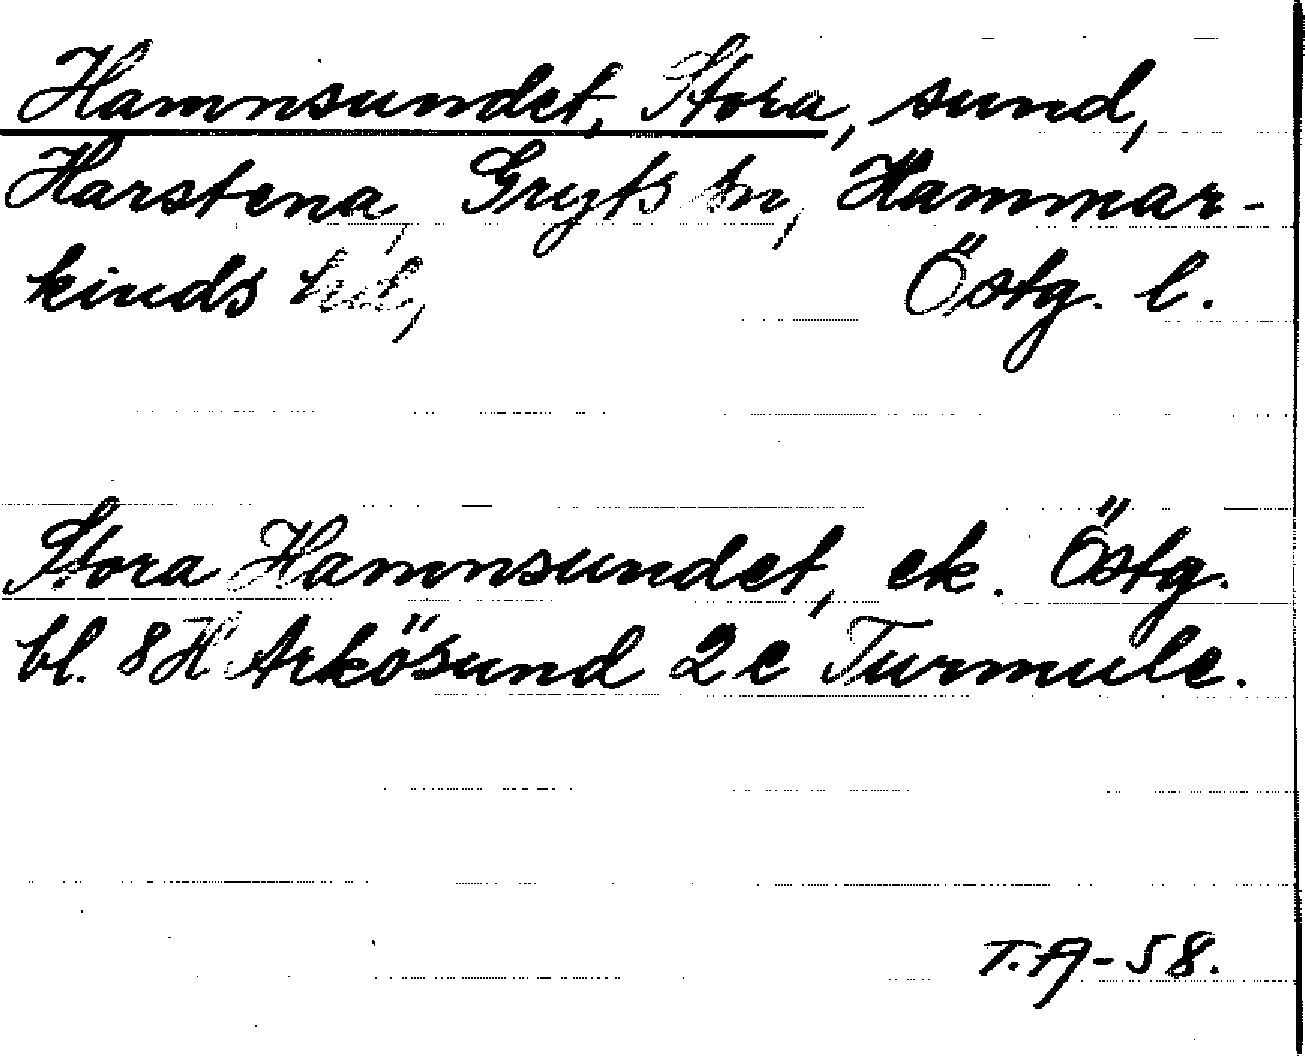 Hamnsundet, Stora, sund,
Harstena, Gryts sn, Hammar-
kinds hd, Östg. l.
Stora Hamnsundet, ek. Östg.
bl. 8H Arkösund 2c Turmule.
T.A-58.